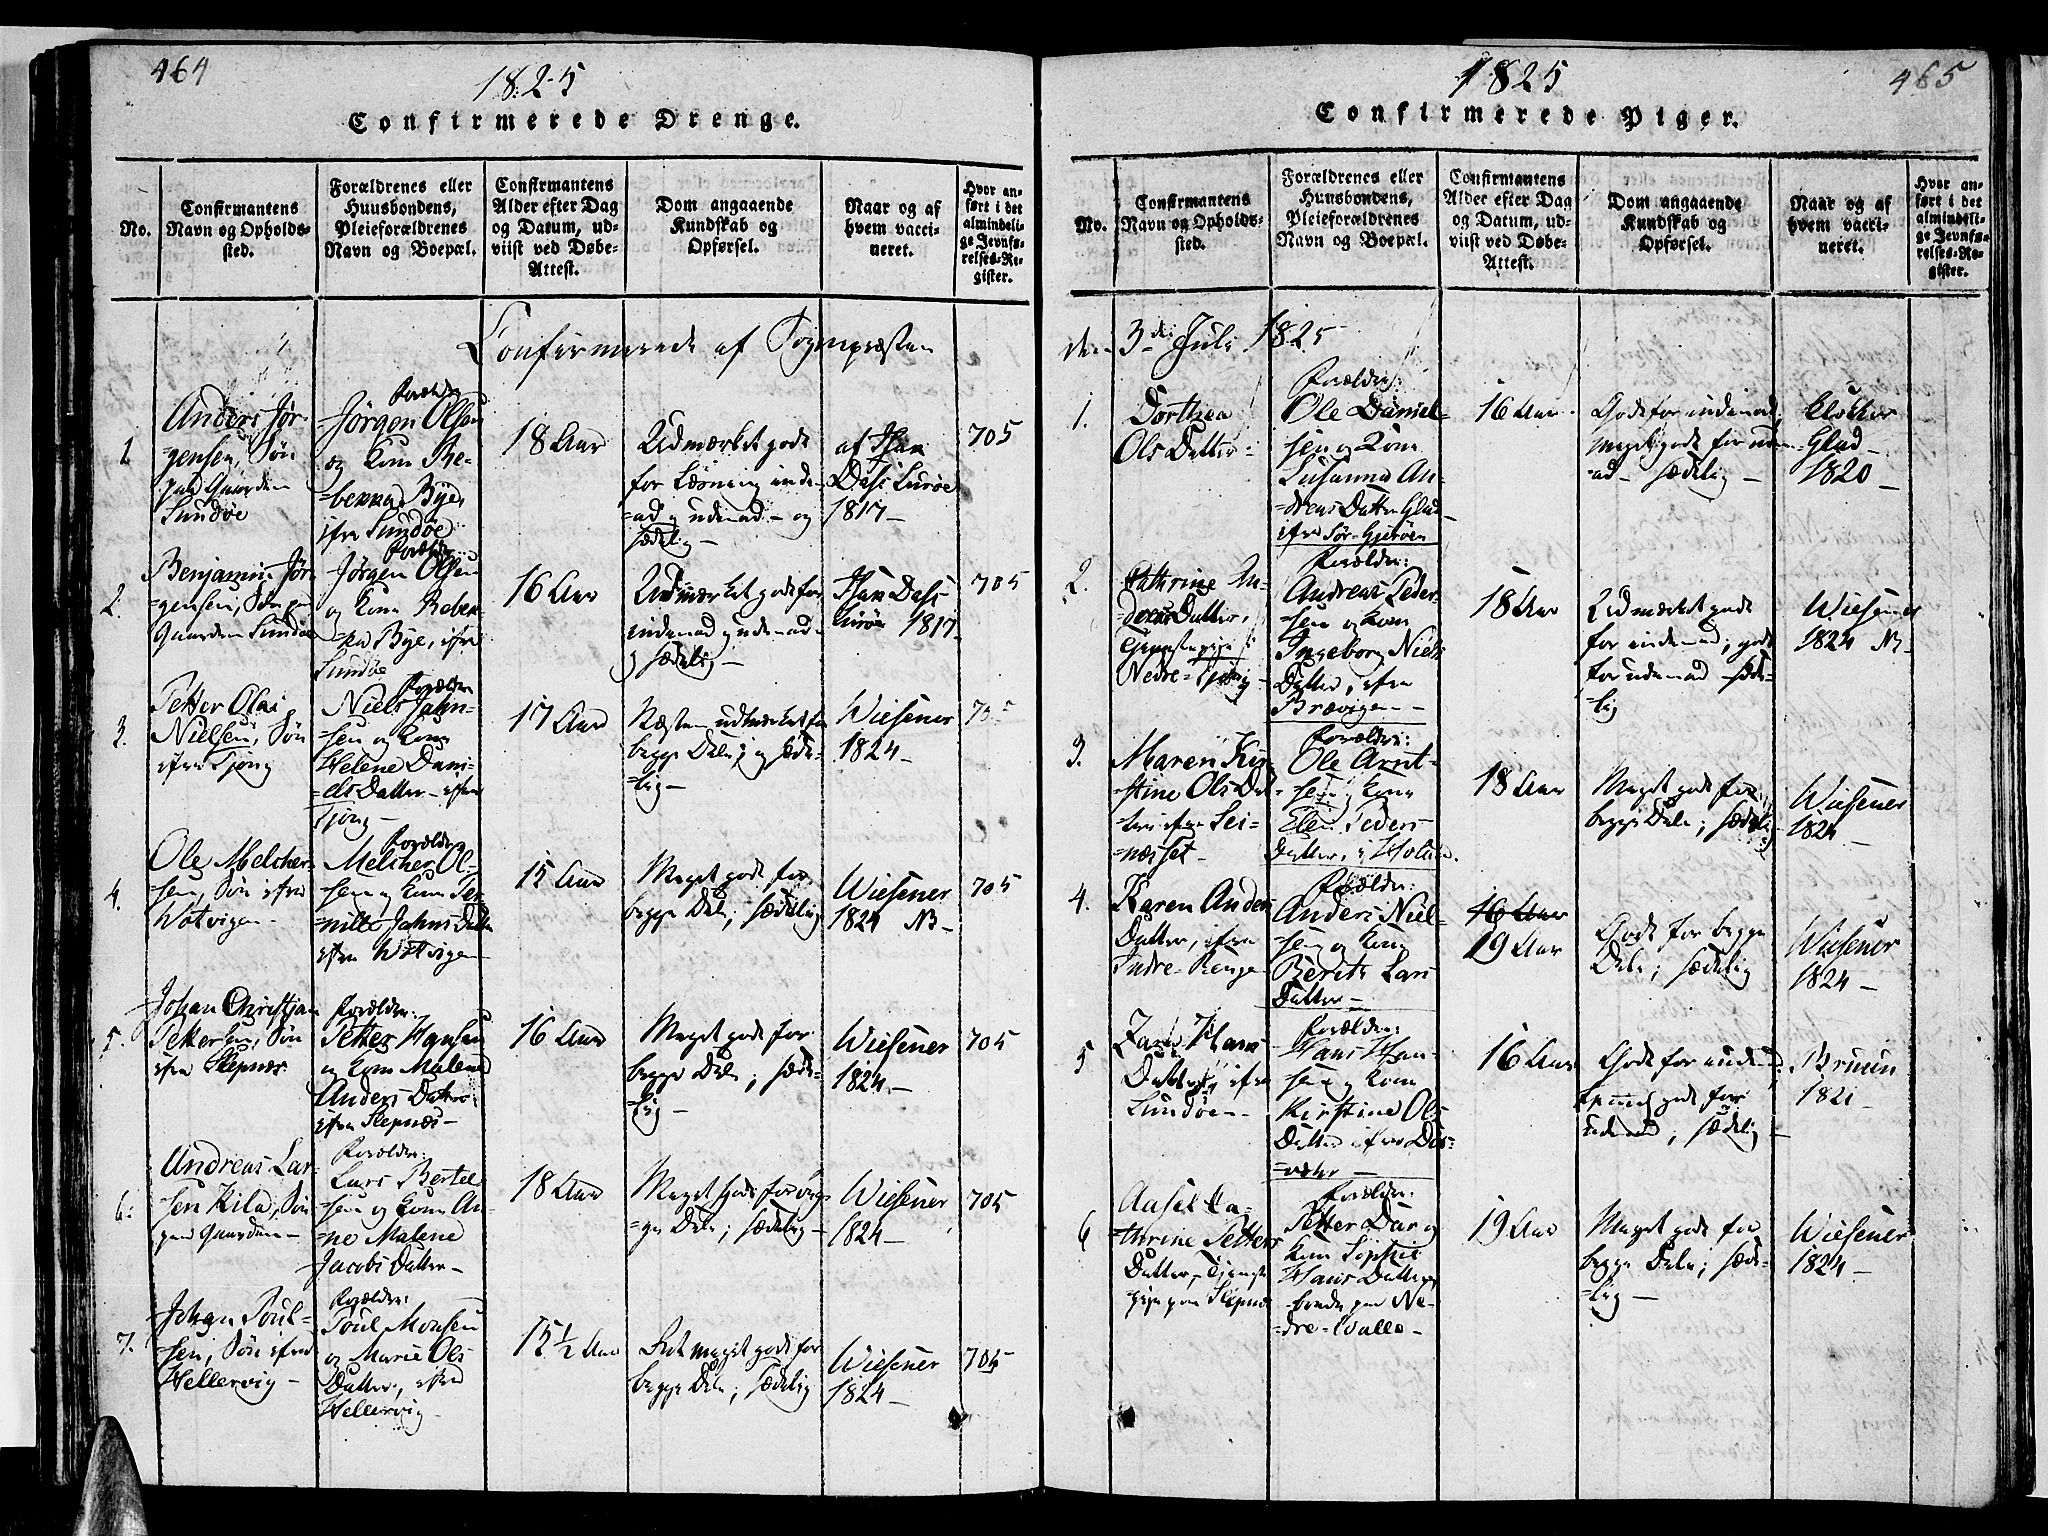 464
1825
Confirmerede Drenge.
No.
Confirmantens
Navn og Opholds-
sted.
Forældrenes eller
Huusbondens,
Pleieforældrenes
Navn og Boepæl.
Confirmantens
Alder efter Dag
og Datum, ud-
viist ved Døbe-
Attest.
Dom angaaende
Kundskab og
Opførsel.
Naar og af
hvem vacci-
neret.
Hvor an-
ført i det
almindeli-
ge Jevnfø-
relses-Re-
gister.
Confirmerede af Sognepræsten
1
Anders Jør-
gensen, Søn
paa Gaarden
Sundøe
Forældre
Jørgen Olsen
og Kone Re-
bekka Bye,
ifra Sundøe
18 Aar
Udmærket godt
for Læsning inde-
=ad og udenad - og
sædelig -
af Hans
Dass Lurøe
1817 -
705
2.
Benjamin Jør-
=gensen, Søn paa
Gaarden Sundøe
Forældre
Jørgen Olsen
og Kone Rebek-
=ka Bye, ifra
Sundøe
16 Aar
Udmærket godt for
indenad og udenad
og sædelig -
Hans Dass
Lurøe 1817.
705
3.
Petter Olai
Nielsen, Søn
ifra Tjong
Forældre
Niels Jahn-
=sen og Kone
Helene Dani-
=els Datter - ifra
Tjong -
17 Aar
Næsten udmærket for
begge Dele; og sæde-
=lig -
Wiesener
1824 -
705
4.
Ole Melcher-
sen, Søn ifra
Wotvigen -
Forældre
Melcher Ol-
sen og Kone Per-
=nille Jahns Datter
ifra Wotvigen
15 Aar
Meget godt for
begge Dele; sædelig
Wiesener
1824 N. -
705
5.
Johan Christian
Pettersen, Søn
ifra Slepnæs
Forældre:
Petter Hansen
og Kone Malene
Anders Datter
ifra Slepnæs -
16 Aar
Meget godt for
begge Dele; sæde-
=lig -
Wiesener
1824 -
705
6.
Andreas Lar-
sen Kila, Søn
paa Gaarden -
Forældre:
Lars Bertel
=sen og Kone An-
=ne Malene
Jacobs Datter -
18 Aar
Meget godt for beg-
=ge Dele; sædelig -
Wiesener
1824 -
705
7.
Johan Poul-
sen, Søn ifra
Hellervig -
Forældre:
Poul Monsen
og Marie Ols
Datter, ifra
Hellervig -
15 1/2 Aar
Ret meget godt for
begge Dele; sædelig
Wiesener
1824 -
705
465
1825
Confirmerede Piger.
No.
Confirmantens
Navn og Opholds-
sted.
Forældrenes eller
Huusbondens,
Pleieforældrenes
Navn og Boepæl.
Confirmantens
Alder efter Dag
og Datum, ud-
viist ved Døbe-
Attest.
Dom angaaende
Kundskab og
Opførsel.
Naar og af
hvem vacci-
neret.
Hvor an-
ført i det
almindeli-
ge Jevnfø-
relses-Re-
gister.
den 3de Juli 1825
1.
Dorthea
Ols Datter
Forældre:
Ole Daniel-
sen og Kone
Susanna An-
=dreas Datter Glad
ifra Sør-Gjerøen
16 Aar
Godt for indenad
meget godt for uden-
ad - sædelig -
Klokker
Glad
1820 -
2.
Cathrine An-
=dreas Datter,
Tjenestepige i
Nedre-Tjong -
Forældre:
Andreas Peder-
sen og Kone
Ingeborg Niels
Datter, ifra
Brævigen -
18 Aar
Udmærket godt
for indenad, godt
for udenad sæde-
=lig
Wiesener
1824 N. -
3.
Maren Kir-
stine Ols Dat-
ter ifra Sei-
=næsset -
Forældre:
Ole Arnt-
=sen og Kone
Elen Peders
Datter, i Holan.
18 Aar
Meget godt for
begge Dele; sædelig
Wiesener
1824 -
4.
Karen Anders
Datter, ifra
Indre-Range
Forældre:
Anders Niel-
sen og Kone
Berith Lars
Datter -
16 Aar
19 Aar
Godt for begge
Dele; sædelig
Wiesener
1824 -
5
Hans
Datter, ifra
Sundøe -
Forældre:
Hans Han-
sen og Kone
Kirstine Ols
Datter ifra
16 Aar
Godt for indenad
godt for
udenad; sædelig -
Bruun
1821
6
Aasel Ca-
thrine Petters
Datter, Tjeneste
pige paa Slepnæs
Forældre:
Petter Dar og
Kone Sophie
Hans Datter,
boende paa Ne-
dre-Valle -
19 Aar
Meget godt for
begge Dele; sæde-
=lig -
Wiesener
1824 -